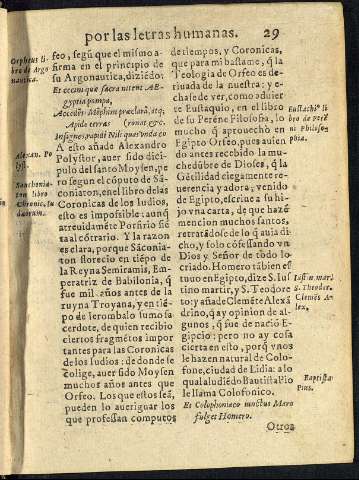 por las letras humanas. 29
Orpheus libro de Argonautica.
feo, segũ que el mismo afirma en el principio de
su Argonautica, diziẽdo:
Accedẽs Mẽphim præclarã, atq;
Apidis terras
A esto añade Alexandro
Polystor, auer sido dicipulo
del santo Moysen, pero
segun el cõputo de Sãconiaton,
en el libro delas
Coronicas de los Iudios,
esto es impossible: aunq̃
atreuidamẽte Porfirio siẽta
al cõtrario. Y la razon
es clara, porque Sãconiaton
florecio en tiẽpo de
la Reyna Semiramis, Emperatriz
de Babilonia, q̃
fue mil años antes de la
reyna Troyana, y en tiẽpo
de Ierombalo sumo sacerdote,
de quien recibio
ciertos fragmẽtos importantes
para las Coronicas
de los Iudios: de donde se
colige, auer sido Moysen
muchos años antes que
Orfeo. Los que estos seã,
pueden lo aueriguar los
que professan computos
Alexan. Polyst.
Sanchoniaton libro
Chronic. Iudæorum.
de tiempos, y Coronicas,
que para mi bastame, q̃ la
Teologia de Orfeo es deriuada
de la nuestra: y echase
de ver, como aduierte
Eustaquio, en el libro
de su Perẽne Filosofia, lo
mucho q̃ aprouecho en
Egipto Orfeo, pues auiendo
antes recebido la muchedũbre
de Dioses, q̃ la
Gẽtilidad ciegamente reuerencia
y adora; venido
de Egipto, escriue a su hijo
vna carta, de que hazẽ
mencion muchos santos,
retratãdose de lo q̃ auia dicho,
y solo cõfessando vn
Dios y Señor de todo lo
criado. Homero tãbien estuuo
en Egipto, dize S. Iustino
martir, y S. Teodoreto:
y añade Clemẽte Alexãdrino,
q̃ ay opinion de algunos,
q̃ fue de nació Egipcio:
pero no ay cosa
cierta en esto, porq̃ vnos
le hazen natural de Colofone,
ciudad de Lidia: a lo
qual aludiẽdo Baptista Pio
le llama Colofonico.
Et Colophoniaco iunctus Maro
fulget Homero.
Eustachi9 libro de perẽni Philosophia.
Iusti9 mar.
S. Theodor.
Clemẽs Alex.
Baptista Pius.
Otros